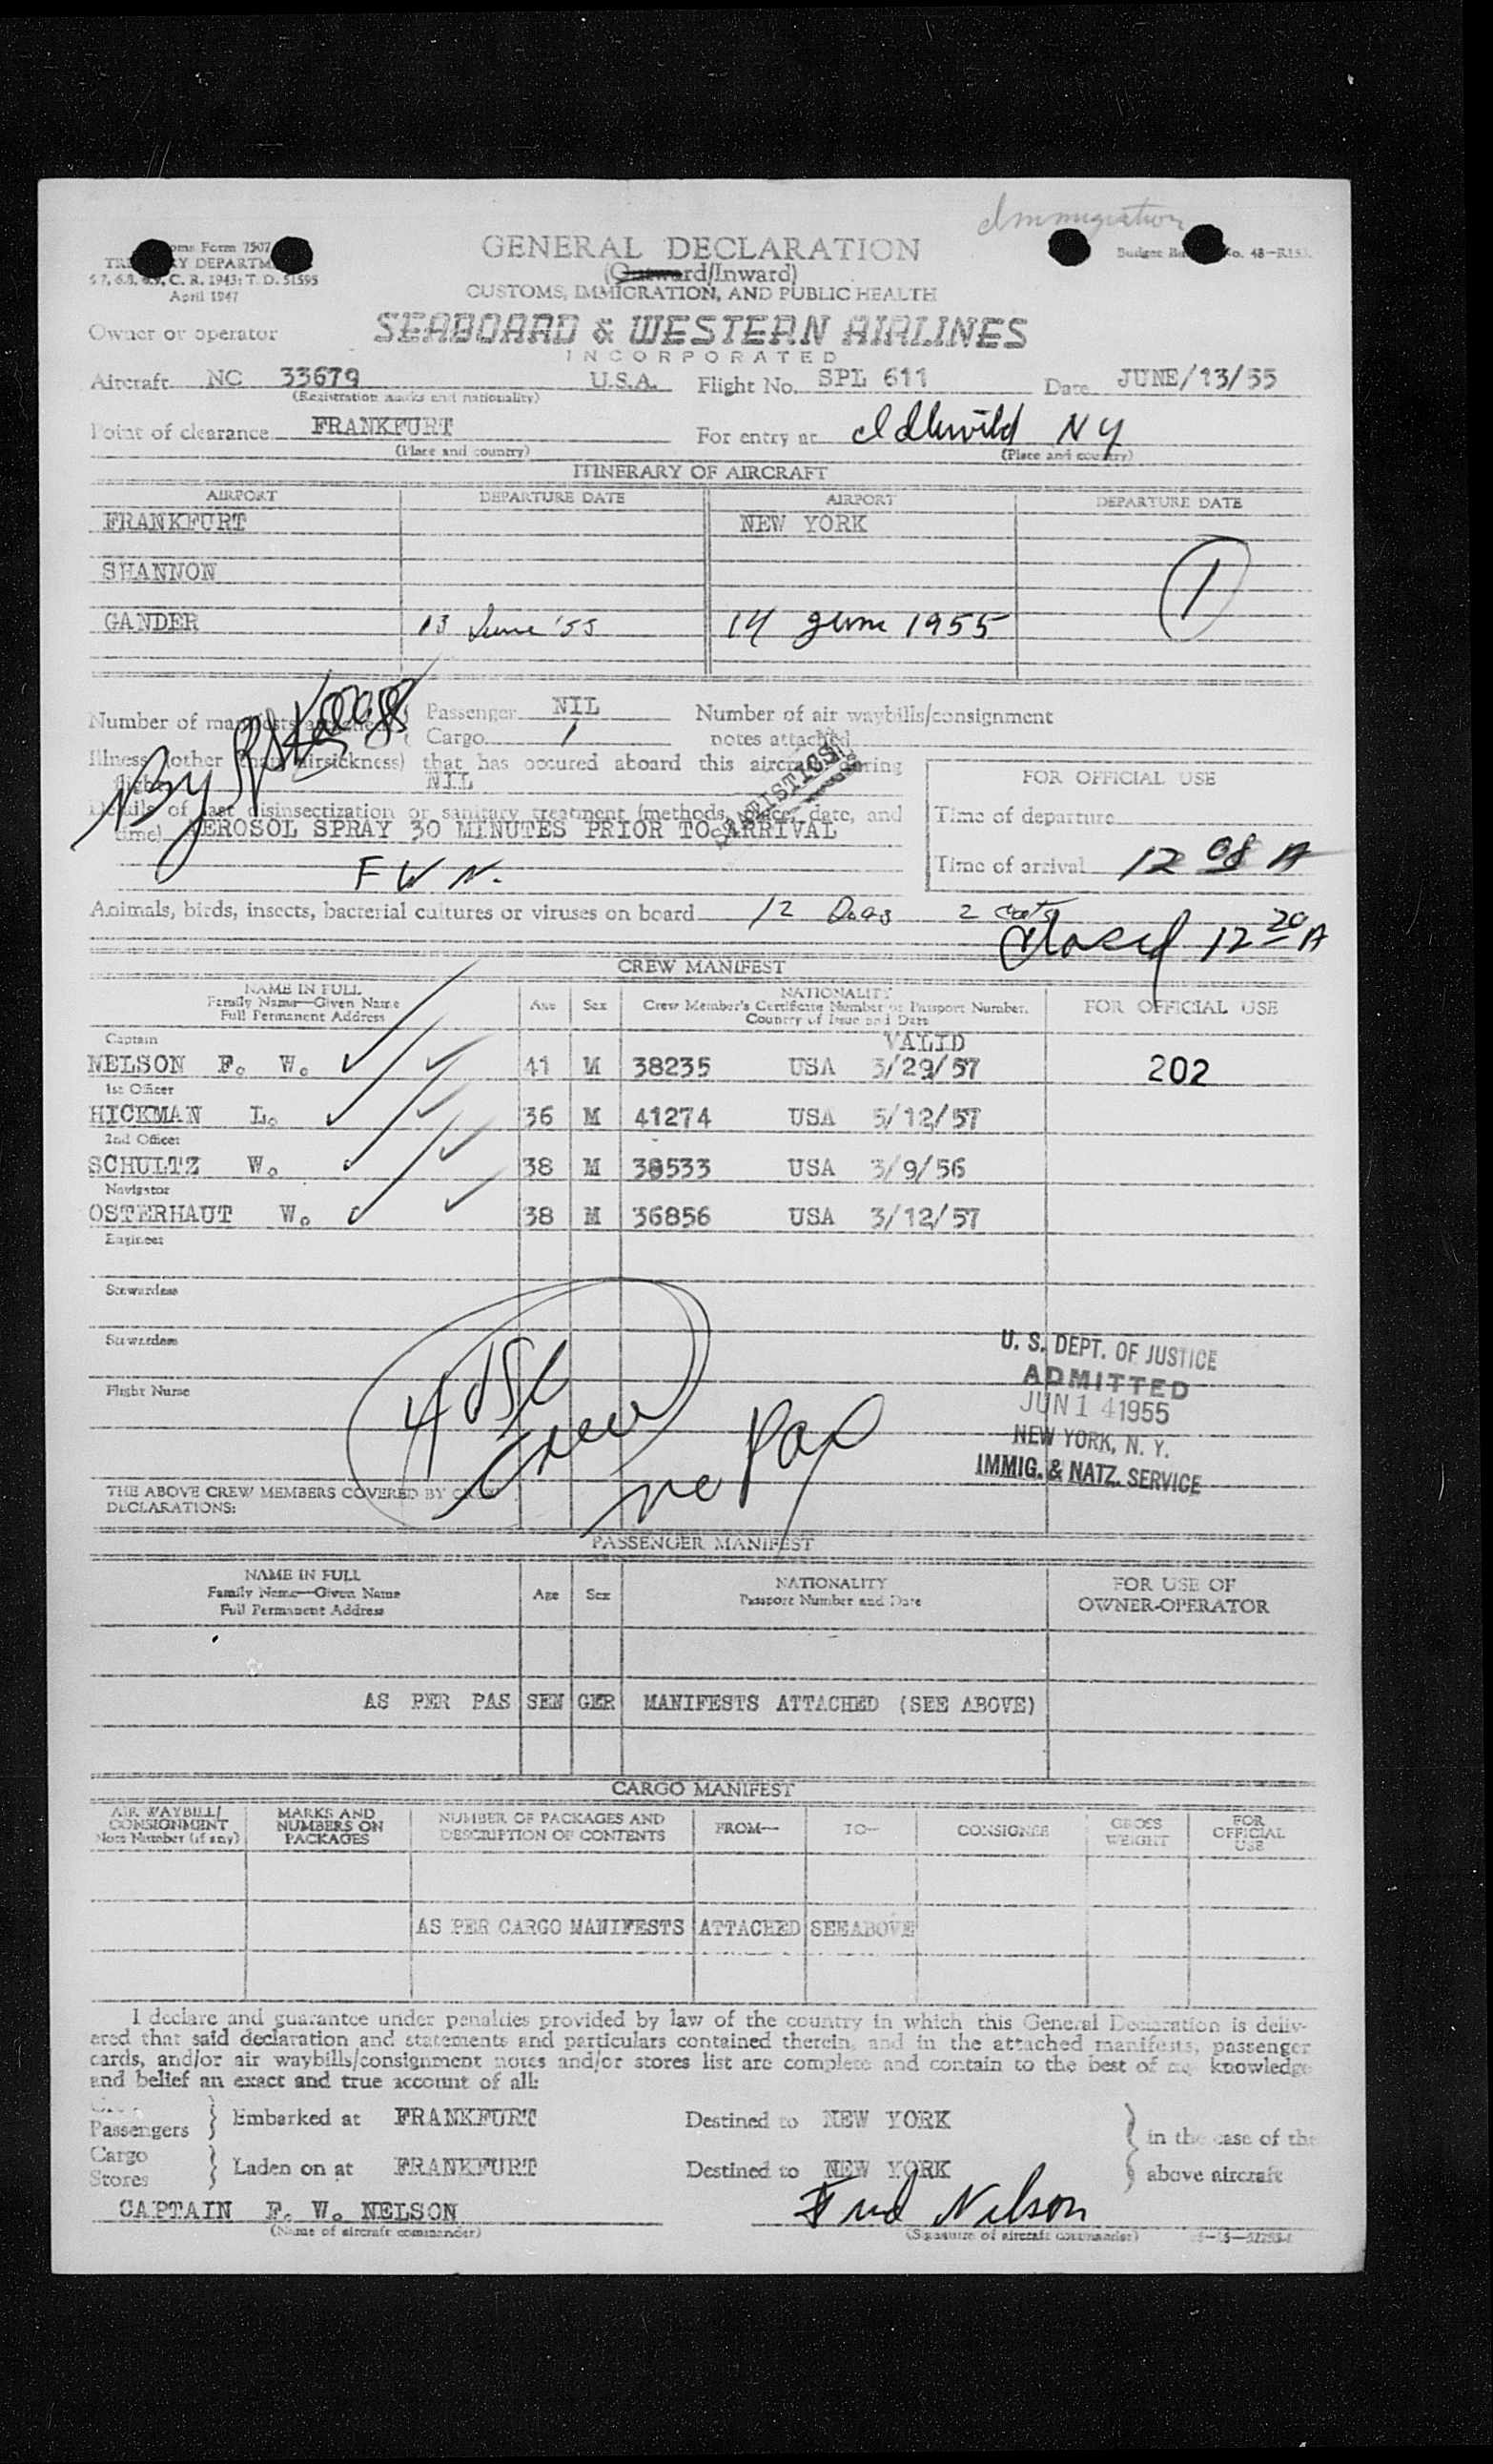 Immigration
oms Form 7507 GENERAL DECLARATION
TRE RY DEPARTM (Outward/Inward) Budget Bu No. 48-R153.
C. R. 1943: T. D. 51595 CUSTOMS, IMMIGRATION, AND PUBLIC HEALTH
April 1947
Owner or operator SEABOARD & WESTERN AIRLINES
INCORPORATED
Aircraft NC 33679 U.S.A. Flight No. SPL 611 Date JUNE/13/55
(Registration marks and nationality)
Point of clearance FRANKFURT For entry at Idlewild NY
(Place and country) (Place and country)
ITINERARY OF AIRCRAFT
AIRPORT DEPARTURE DATE AIRPORT DEPARTURE DATE
FRANKFURT NEW YORK
SHANNON 1
GANDER 13 June '55 14 June 1955
Number of manifests attached Passenger NIL Number of air waybills/consignment
Cargo 1 notes attached
Illness (other than airsickness) that has occured aboard this aircraft during
flight NIL
STATISTICS
By
Details of last disinsectization or sanitary treatment (methods, place, date, and
time) AEROSOL SPRAY 30 MINUTES PRIOR TO ARRIVAL
F W N.
FOR OFFICIAL USE
Time of departure
Time of arrival 12 08 A
Animals, birds, insects, bacterial cultures or viruses on board 12 Dogs 2 cats
closed 12 20 A
CREW MANIFEST
NAME IN FULL
Family Name—Given Name
Full Permanent Address
Age Sex
NATIONALITY
Crew Member's Certificate Number or Passport Number.
Country of Issue and Date
FOR OFFICIAL USE
Captain VALID
NELSON F. W. 41 M 38235 USA 3/29/57 202
1st Officer
HICKMAN L. 36 M 41274 USA 5/12/57
2nd Officer
SCHULTZ W. 38 M 38533 USA 3/9/56
Navigator
OSTERHAUT W. 38 M 36856 USA 3/12/57
Engineer
Stewardess
Stewardess
Flight Nurse
4 USC
crew
no pax
U. S. DEPT. OF JUSTICE
ADMITTED
JUN 14 1955
NEW YORK, N. Y.
IMMIG. & NATZ. SERVICE
THE ABOVE CREW MEMBERS COVERED BY CREW
DECLARATIONS:
PASSENGER MANIFEST
NAME IN FULL
Family Name—Given Name
Full Permanent Address
Age Sex
NATIONALITY
Passport Number and Date
FOR USE OF
OWNER-OPERATOR
AS PER PAS SEN GER MANIFESTS ATTACHED (SEE ABOVE)
CARGO MANIFEST
AIR WAYBILL/
CONSIGNMENT
Note Number (if any)
MARKS AND
NUMBERS ON
PACKAGES
NUMBER OF PACKAGES AND
DESCRIPTION OF CONTENTS
FROM— TO— CONSIGNEE
GROSS
WEIGHT
FOR
OFFICIAL
USE
AS PER CARGO MANIFESTS ATTACHED SEEABOVE
I declare and guarantee under penalties provided by law of the country in which this General Declaration is deliv-
ered that said declaration and statements and particulars contained therein, and in the attached manifests, passenger
cards, and/or air waybills/consignment notes and/or stores list are complete and contain to the best of my knowledge
and belief an exact and true account of all:
Passengers Embarked at FRANKFURT Destined to NEW YORK in the case of the
Cargo
Stores Laden on at FRANKFURT Destined to NEW YORK above aircraft
CAPTAIN F. W. NELSON Fred Nelson
(Name of aircraft commander) (Signature of aircraft commander)